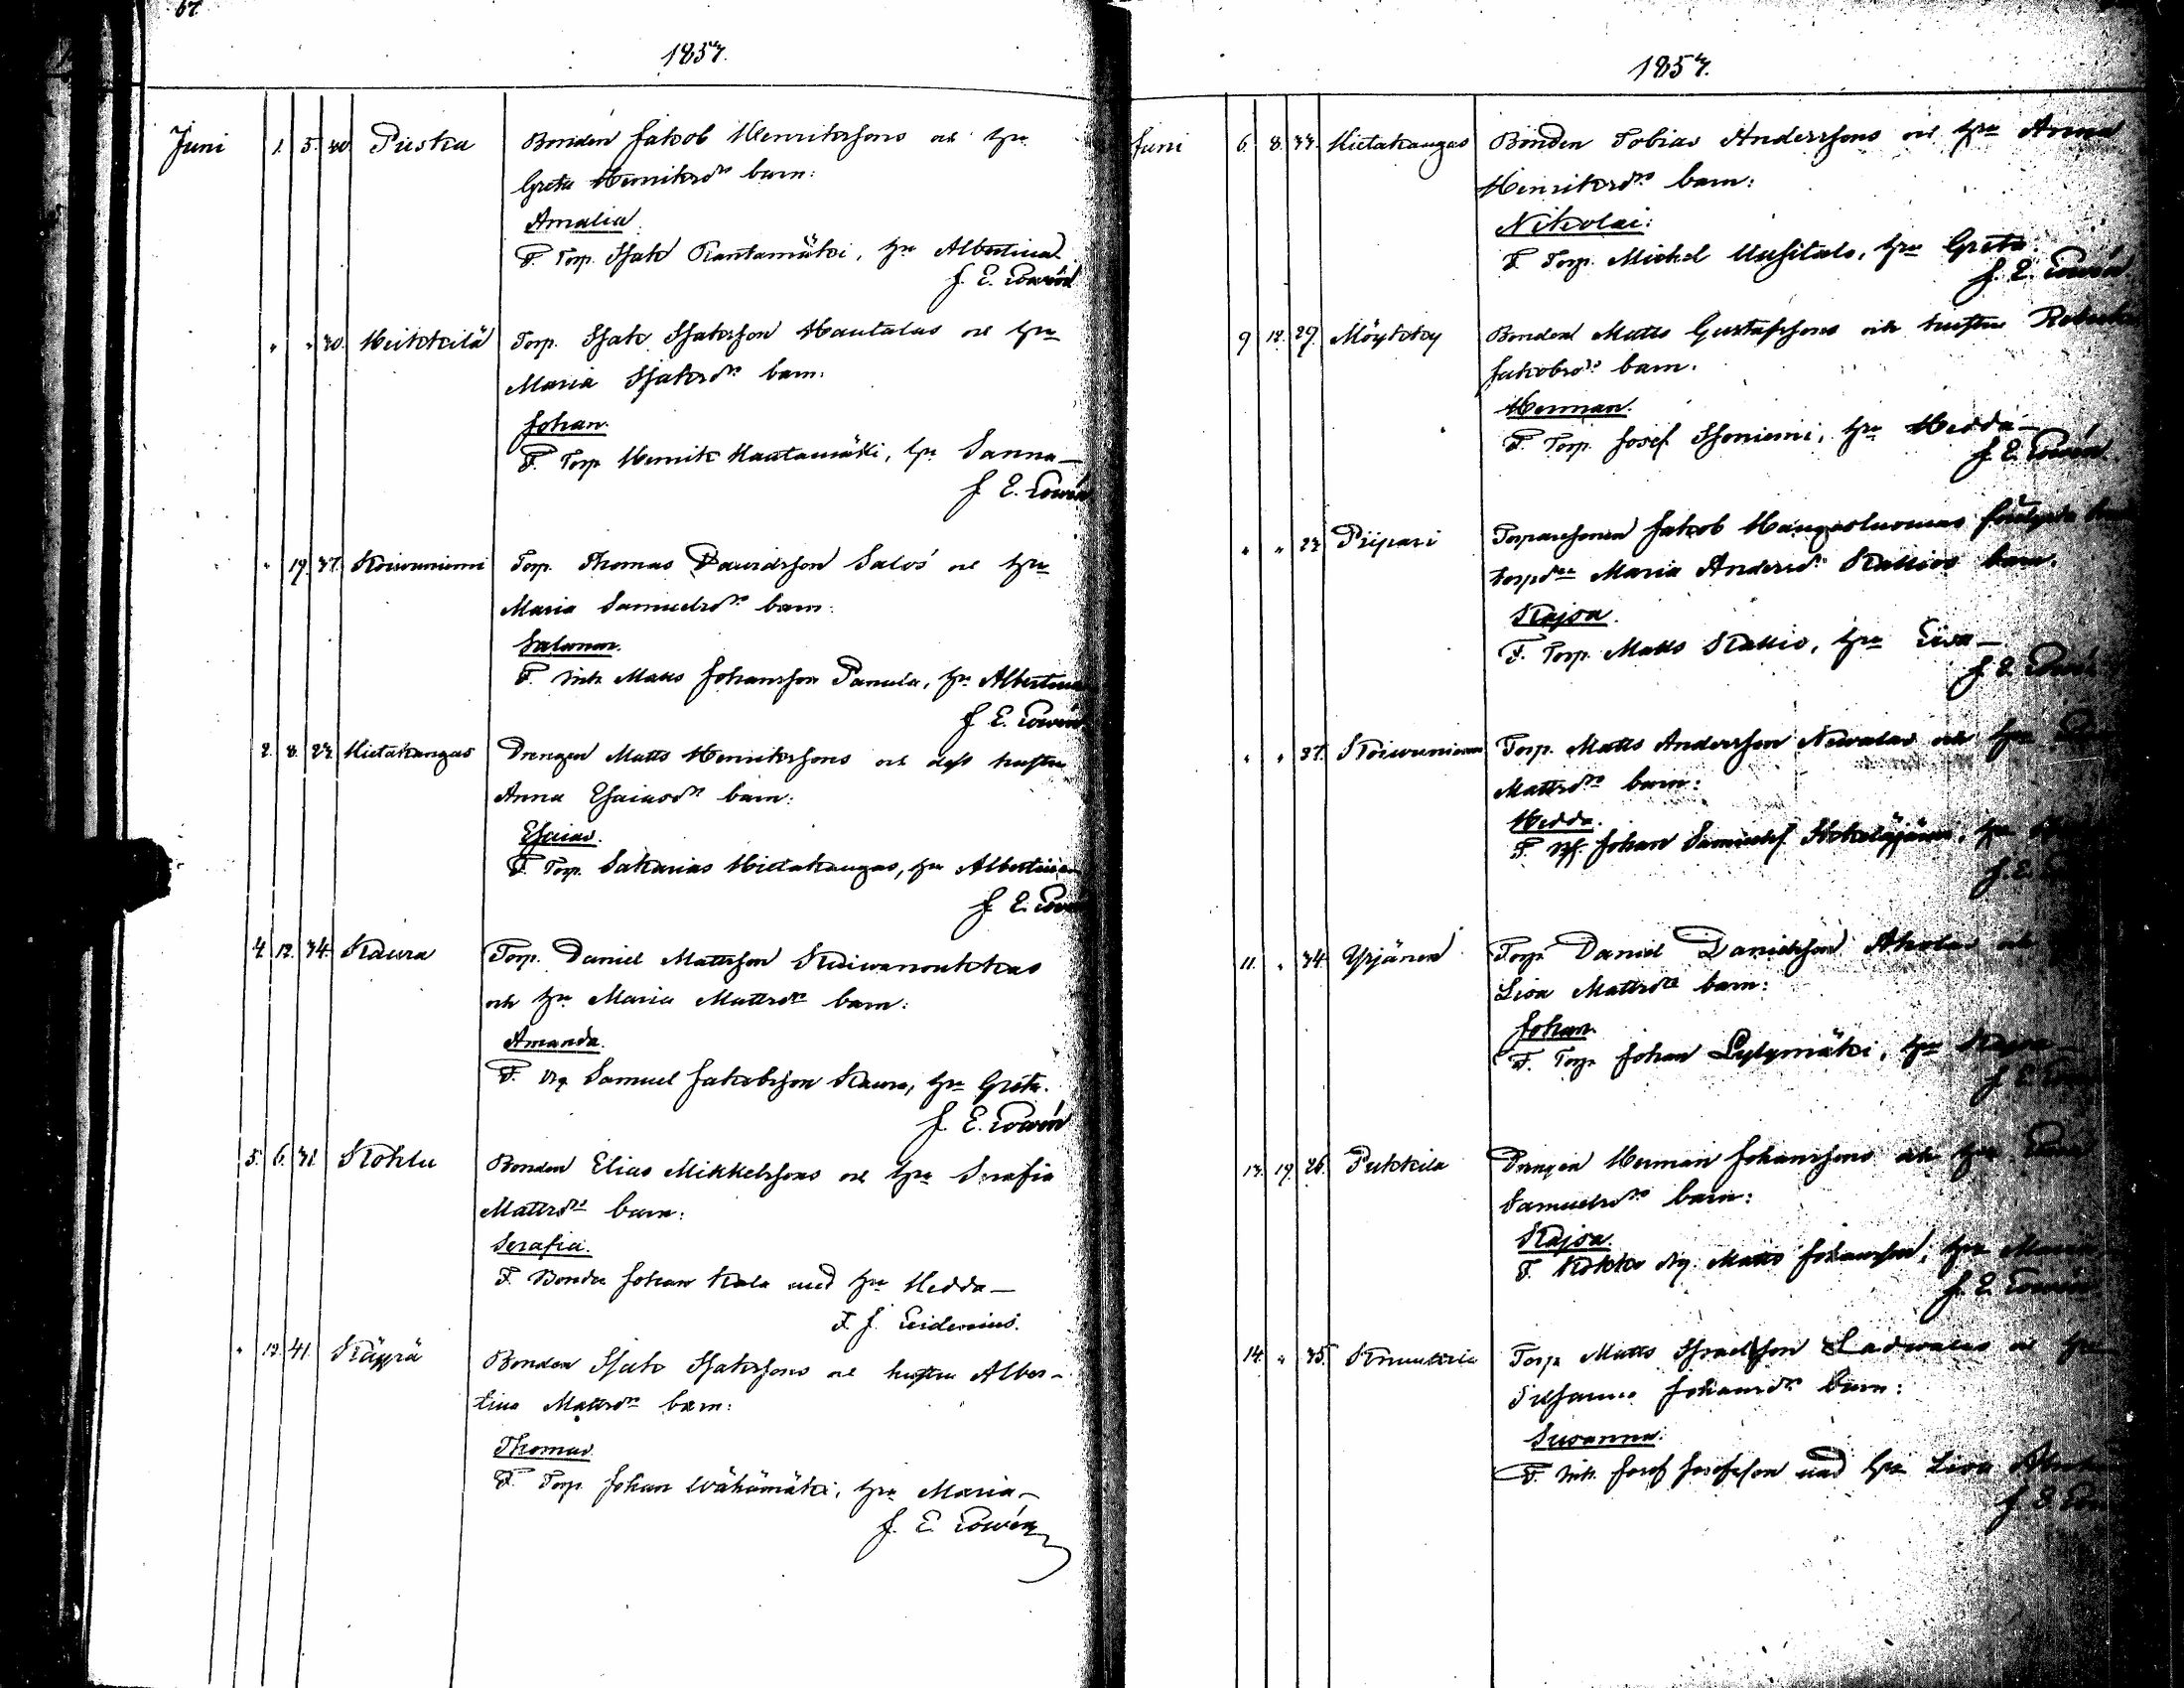 67.
1857.
Juni 1. 5. 40 Piiska Bonden Jakob Henrikssons och hu
Greta Henriksdr barn:
Amalia
F. Torp. Isak Rantamäki, hu Albertina
J. E. Cowén
" " 40. Heikkilä Torp. Isak Isaksson Hautalas och hu
Maria Isaksdr barn:
Johan.
F. Torp Henrik Hautamäki, hu Sanna—
J. E. Cowén
" 19. 37. Koivuniemi Torp. Thomas Davidsson Salos och hu
Maria Samuelsdr barn:
Salomon.
F. Matts Johansson Panula, hu Albertina
J. E. Cowén
2. 8. 23 Hietakangas Drengen Matts Henrikssons och dess hustru
Anna Esaiasdr barn:
Esaias.
F. Torp. Sakarias Hietakangas, hu Albertina
J. E. Cowén
4 12. 34. Kaura Torp. Daniel Mattsson Koivunoukkas
och hu Maria Mattsdr barn:
Amanda.
F. drg Samuel Jakobsson Kaura, hu Greta.
J. E. Cowén
5. 6. 31. Kohlu Bonden Elias Mikkelssons och hu Serafia
Mattsdr barn:
Serafia.
F. Bonden Johan Kala med hu Hedda—
F. J. Leidenius.
" 12. 41. Käyrä Bonden Isak Isakssons och hustru Alber-
tina Mattsdr barn:
Thomas.
F. Torp. Johan Wähämäki, hu Maria—
J. E. Cowén
1857.
Juni 6. 8. 33. Hietakangas Bonden Tobias Anderssons och hu Anna
Henriksdr barn:
Nikolai:
F. Torp. Michel Uusitalo, hu Greta
J. E. Cowén
9 12. 29. Möykky Bonden Matts Gustafssons och hustru
Jakobsdr barn.
Herman.
F. Torp. Josef Isoniemi, hu Hedda—
J. E. Cowén
" " 23 Pripari Torparesonen Jakob Hangasluomas
torpdr Maria Andersdr Kallios barn.
Kajsa.
F. Torp. Matts Kallio, hu Lisa—
J. E. Cowén
" " 37. Koivuniemi Torp. Matts Andersson Nevalas och hu
Mattsdr barn:
Hedda.
F. Johan Samuelss. hu
J. E.
11. " 34 Yrjänen Torp. Daniel Danielsson Aholas och
Lisa Mattsdr barn:
Johan.
F. Torp. Johan Lylymäki, hu Kajsa
J. E. Cowén
13. 19. 26. Pukkila Drengen Herman Johanssons och hu
Samuelsdr barn:
Kajsa.
F. Kokko drg. Matts Johansson, hu Maria
J. E. Cowén
14. " 35. Knuuttila Torp. Matts Israelsson Ladvalas och hu
Susanna Johansdr barn:
Susanna.
F. Josef Josefsson med hu Lisa
J. E. Cowén